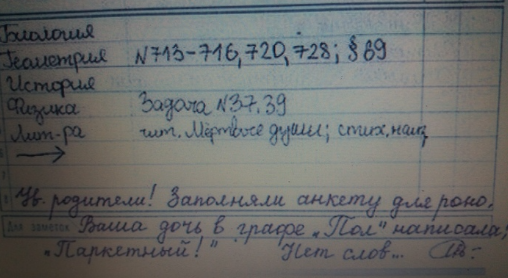 Биология
Геометрия N713-716, 720, 728; § 69
История
Физика Задача N37, 39
Лит-ра чит. Мёртвые души; стих. наиз
Ув. родители! Заполняли анкету для роно.
Для заметок Ваша дочь в графе „Пол" написала;
„Паркетный!" Нет слов...